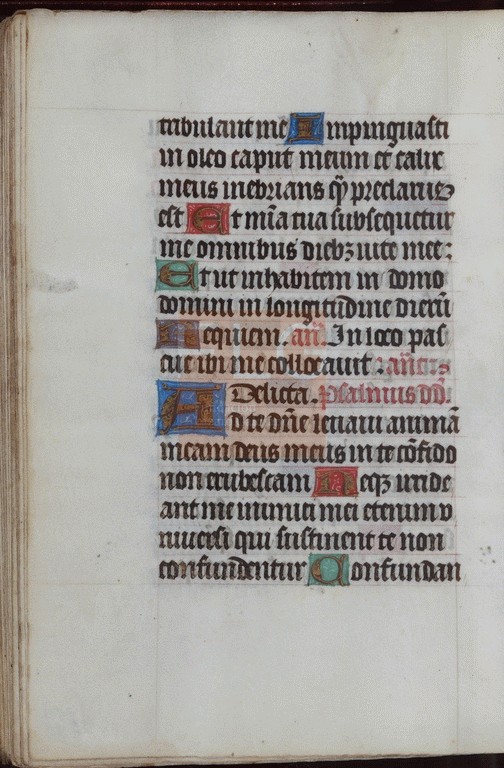 tribulant me Impinguasti
in oleo caput meum et calix
meus inebrians qͣ preclarus
est Et mīa tua subsequetur
me omnibus diebꝫ uite mee:
Et ut inhabitem in domo
domini in longitudine dierū
Requiem. an̄. In loco pas
cue ibi me collocauit. an̄
Delicta. Psalmus dd.
Ad te dn̄e leuaui animā
meam deus meus in te cōfido
non erubescam Neqꝫ irride
ant me inimici mei etenim v
niuersi qui sustinent te non
confundentur Confundan